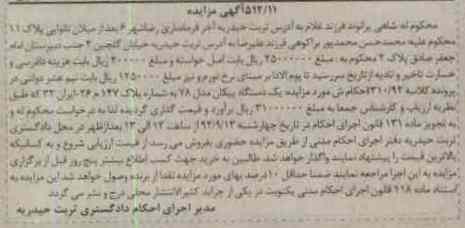 ۵۱۲/۱۱آگهی مزایده
محکوم له شاهی براتوند فرزند غلام به آدرس تربت حیدریه آخر فرمانداری رضاشهر ۶ بعد از میلان نانوایی پلاک ۱۱
محکوم علیه محمدحسن محمدپور براکوهی فرزند علیرضا به آدرس تربت حیدریه خیابان گلچین ۲ جنب دبیرستان امام
جعفر صادق پلاک ۲ محکوم به: مبلغ ۲۵۰۰۰۰۰۰ ریال بابت اصل خواسته و مبلغ ۲۰۰۰۰۰ ریال بابت هزینه دادرسی و
خسارت تاخیر و تادیه از تاریخ سررسید تا یوم الادا بر مبنای نرخ تورم و نیز مبلغ ۱۲۵۰۰۰۰ ریال بابت نیم عشر دولتی در
پرونده کلاسه ۳۱۰/۹۲ احکام ش مورد مزایده: یک دستگاه پیکان مدل ۷۸ به شماره پلاک ۱۴۷ م ۲۶-ایران ۳۲ که طبق
نظریه ارزیاب و کارشناس جمعا به مبلغ ۳۱۰۰۰۰۰۰ ریال برآورد و قیمت گذاری گردیده لذا به درخواست محکوم له و
به تجویز ماده ۱۳۱ قانون اجرای احکام در تاریخ چهارشنبه ۹۲/۹/۱۳ از ساعت ۱۲ الی ۱۳ بعدازظهر در محل دادگستری
تربت حیدریه دفتر اجرای احکام مدنی از طریق مزایده حضوری بفروش می رسد از قیمت ارزیابی شروع و به کسانیکه
بالاترین قیمت را پیشنهاد نمایند واگذار خواهد شد. طالبین به خرید جهت کسب اطلاع بیشتر پنج روز قبل از برگزاری
مزایده به این اجرا مراجعه نمایند ضمنا حداقل ۱۰ درصد بهای مورد مزایده نقدا از برنده وصول خواهد شد این مزایده به
استناد ماده ۱۱۸ قانون اجرای احکام مدنی یکنوبت در یکی از جراید کثیرالانتشار محلی درج و نشر می گردد
مدیر اجرای احکام دادگستری تربت حیدریه